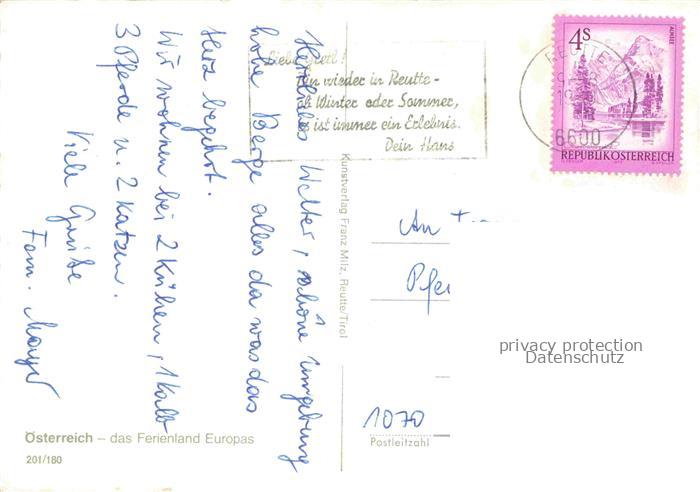 Herrliches Wetter, schöne Umgebung
hohe Berge alles da was das
Herz begehrt.
Wir wohnen bei 2 Kühen, 1 Kalb
3 Pferde u. 2 Katzen.
Viele Grüße
Fam. Mayer
Liebe Gretl!
Bin wieder in Reutte -
ob Winter oder Sommer,
es ist immer ein Erlebnis.
Dein Hans
REUTTE
6600
4S
ALMSEE
REPUBLIK ÖSTERREICH
Kunstverlag Franz Milz, Reutte/Tirol
An
Pfei
privacy protection
Datenschutz
1070
Postleitzahl
Österreich – das Ferienland Europas
201/180